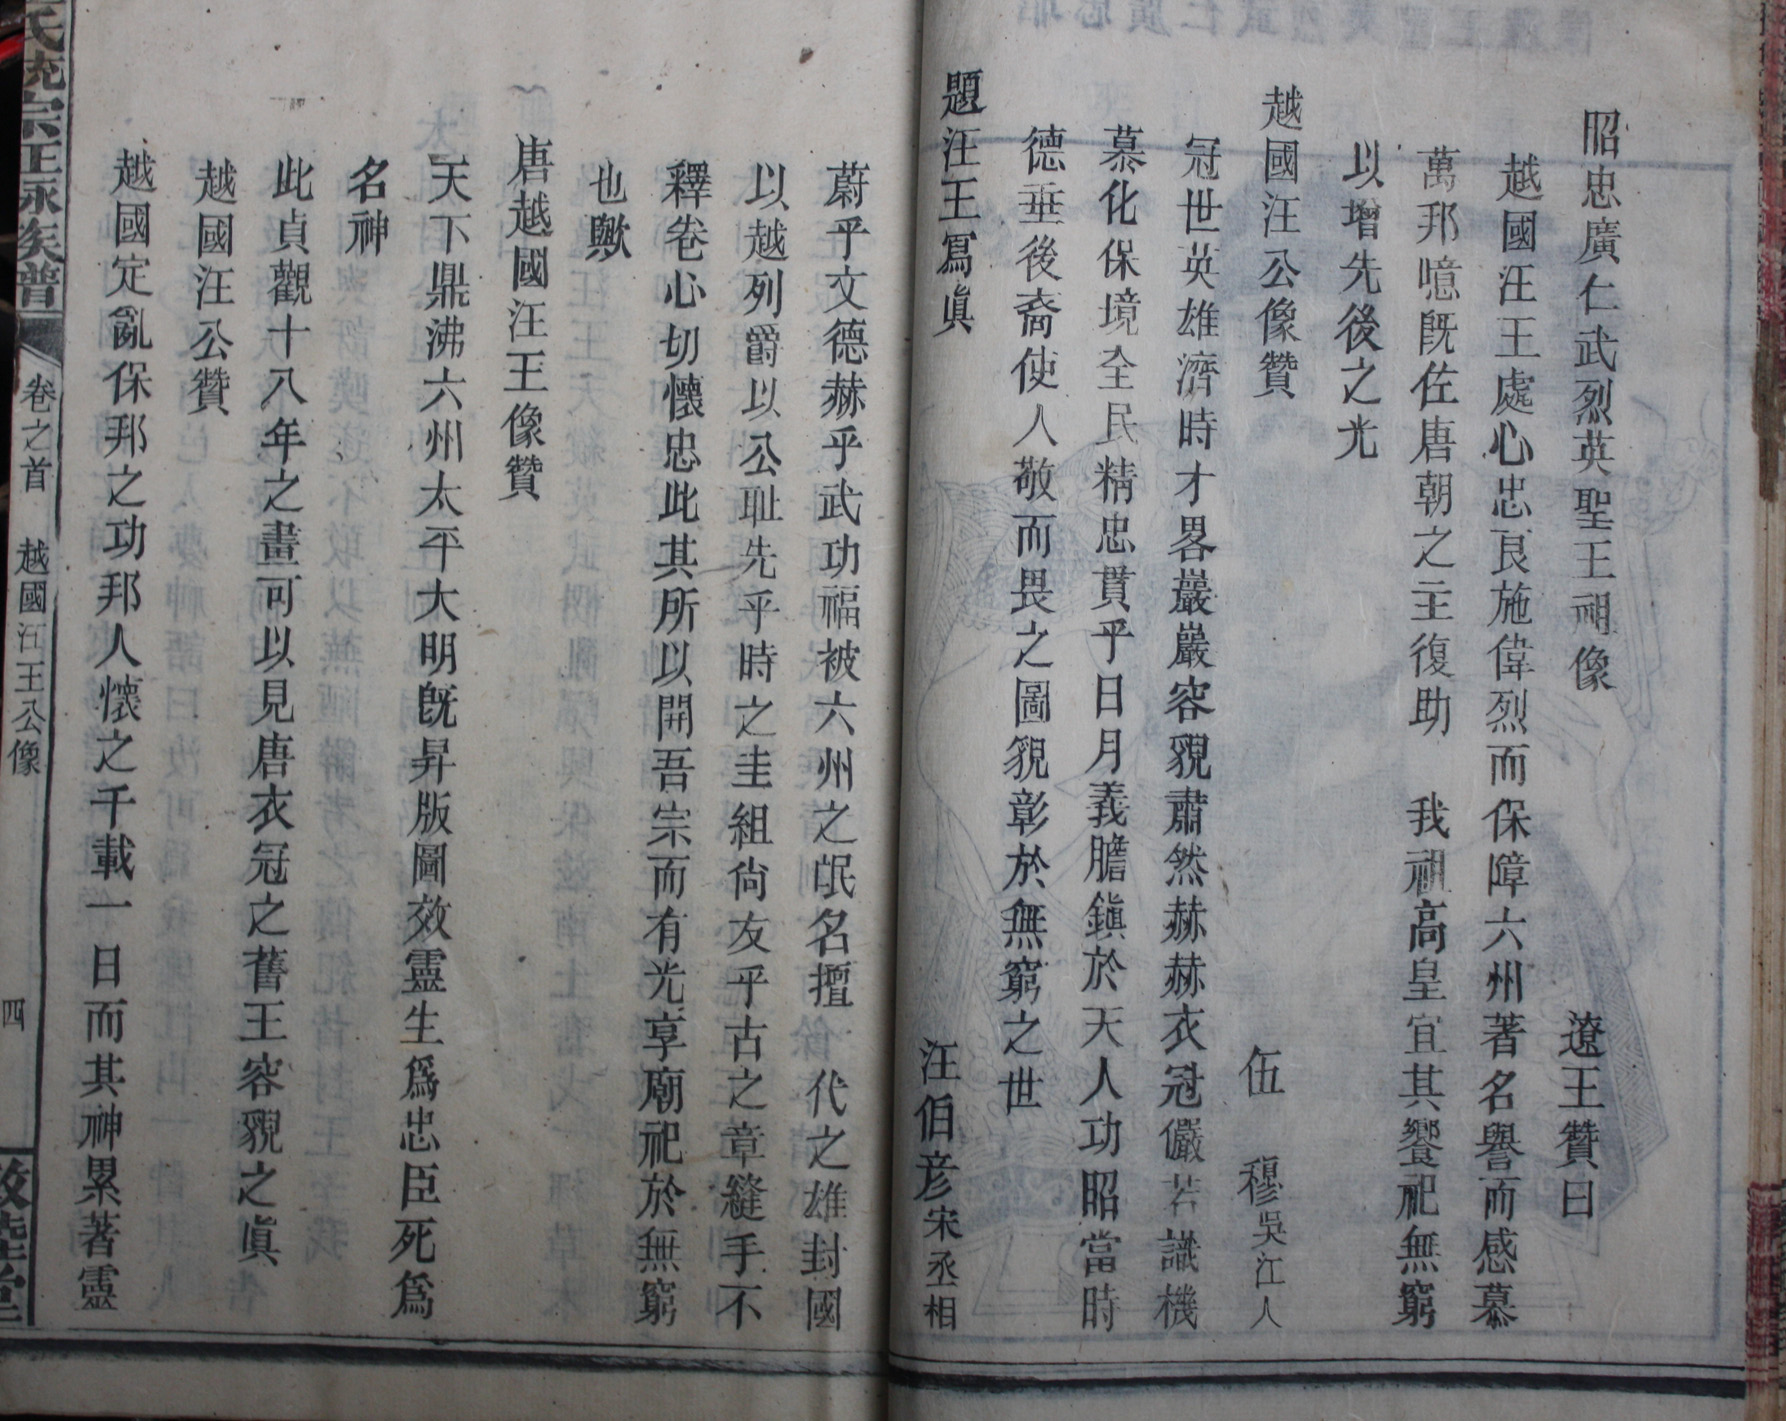 昭忠廣仁武烈英聖王祖像　遼王贊曰
越國汪王處心忠良施偉烈而保障六州著名譽而感慕
萬邦噫旣佐唐朝之主復助　我祖高皇宜其饗祀無窮
以增先後之光
越國汪公像贊　伍　穆吳江人
冠世英雄濟時才畧巖巖容貌肅然赫赫衣冠儼若識機
慕化保境全民精忠貫乎日月義膽鎮於天人功昭當時
德垂後裔使人敬而畏之圖貌彰於無窮之世
題汪王寫眞　汪伯彦宋丞相
蔚乎文德赫乎武功福被六州之氓名擅　代之雄封國
以越列爵以公耻先乎時之圭組尙友乎古之章縫手不
釋卷心切懷忠此其所以開吾宗而有光享廟祀於無窮
也歟
唐越國汪王像贊
天下鼎沸六州太平大明旣昇版圖效靈生爲忠臣死爲
名神
此貞觀十八年之畫可以見唐衣冠之舊王容貌之眞
越國汪公贊
越國定亂保邦之功邦人懷之千載一日而其神累著靈
氏統宗正脉族譜　卷之首　越國汪王公像　四